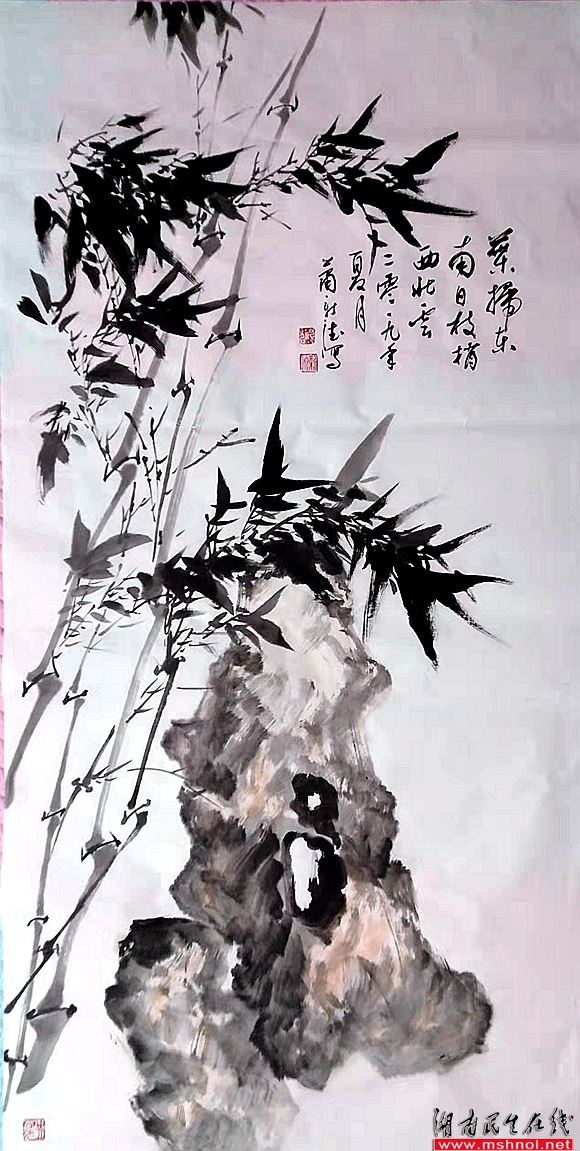 葉掃东
南日枝捎
西北雲
二零一九年
夏月
写
湖南民生在线
www.mshnol.net